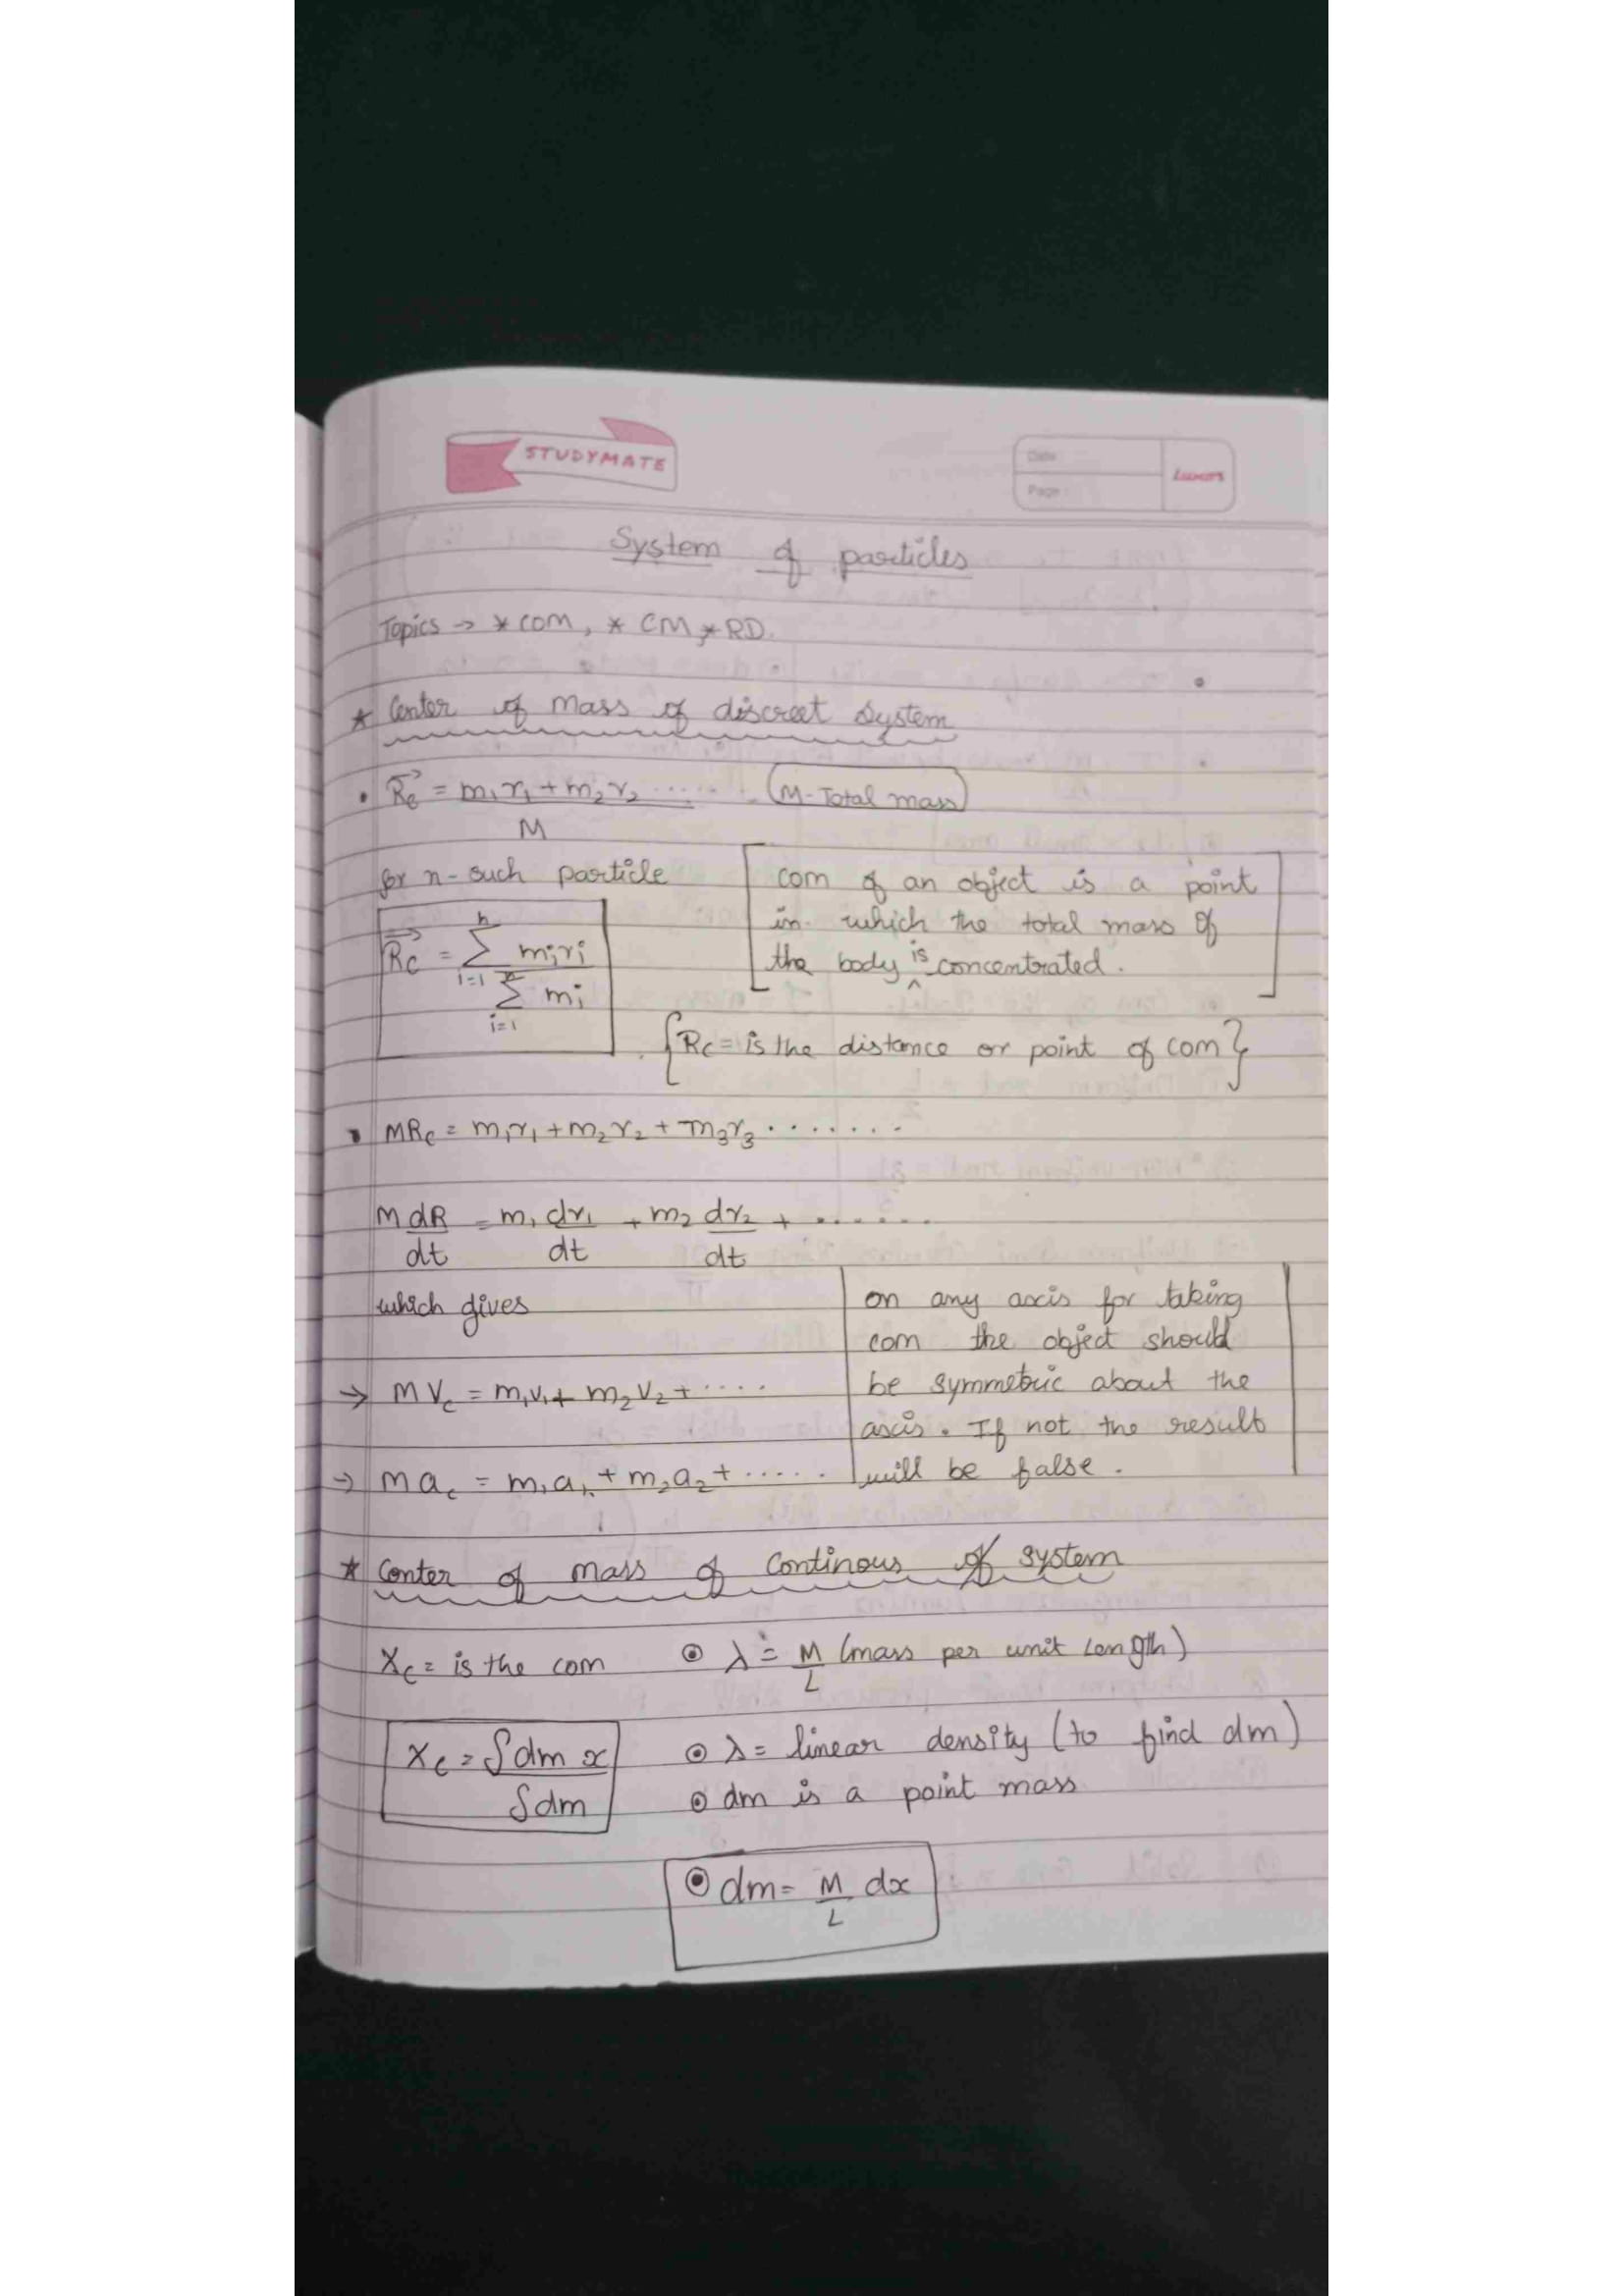 STUDYMATE
Date
Page
Luxors
System of particles
Topics → * COM, * CM, * RD.
* Center of mass of discreet system
• R⃗c = m₁r₁ + m₂r₂ ...... (M - Total mass)
M
for n-such particle
R⃗c = n∑i=1 miri
n∑i=1 mi
[com of an object is a point
in which the total mass of
the body is concentrated.]
{Rc = is the distance or point of com}
• MRc = m₁r₁ + m₂r₂ + m₃r₃ .......
M dR/dt = m₁ dr₁/dt + m₂ dr₂/dt + ......
which gives
→ M Vc = m₁v₁ + m₂v₂ + ....
→ M ac = m₁a₁ + m₂a₂ + .....
on any axis for taking
com the object should
be symmetric about the
axis. If not the result
will be false.
* Center of mass of Continous of system
Xc = is the com
⊙ λ = M/L (mass per unit length)
Xc = ∫dm x
∫dm
⊙ λ = linear density (to find dm)
⊙ dm is a point mass
⊙ dm = M/L dx